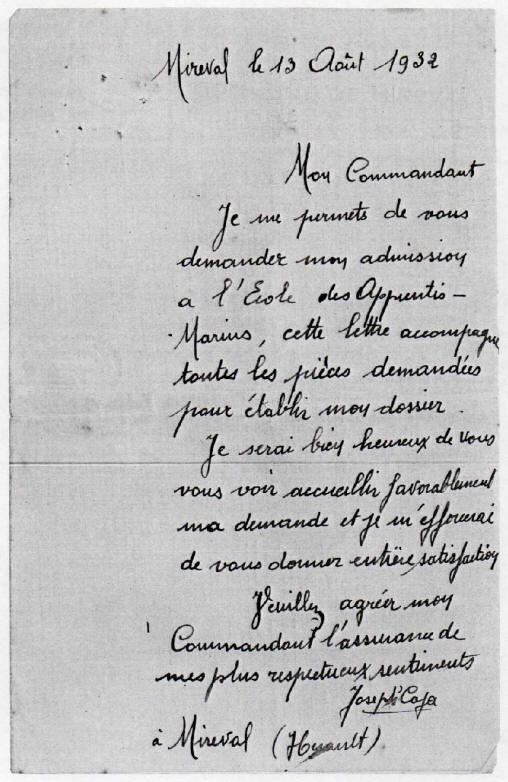 Mireval le 13 Août 1932
Mon Commandant
Je me permets de vous
demander mon admission
a l'Ecole des Apprentis-
Marins, cette lettre accompagne
toutes les pièces demandées
pour établir mon dossier.
Je serai bien heureux de vous
vous voir accueillir favorablement
ma demande et je m'efforcerai
de vous donner entière satisfaction
Veuillez agréer mon
Commandant l'assurance de
mes plus respectueux sentiments
Joseph Caja
à Mireval (Herault)